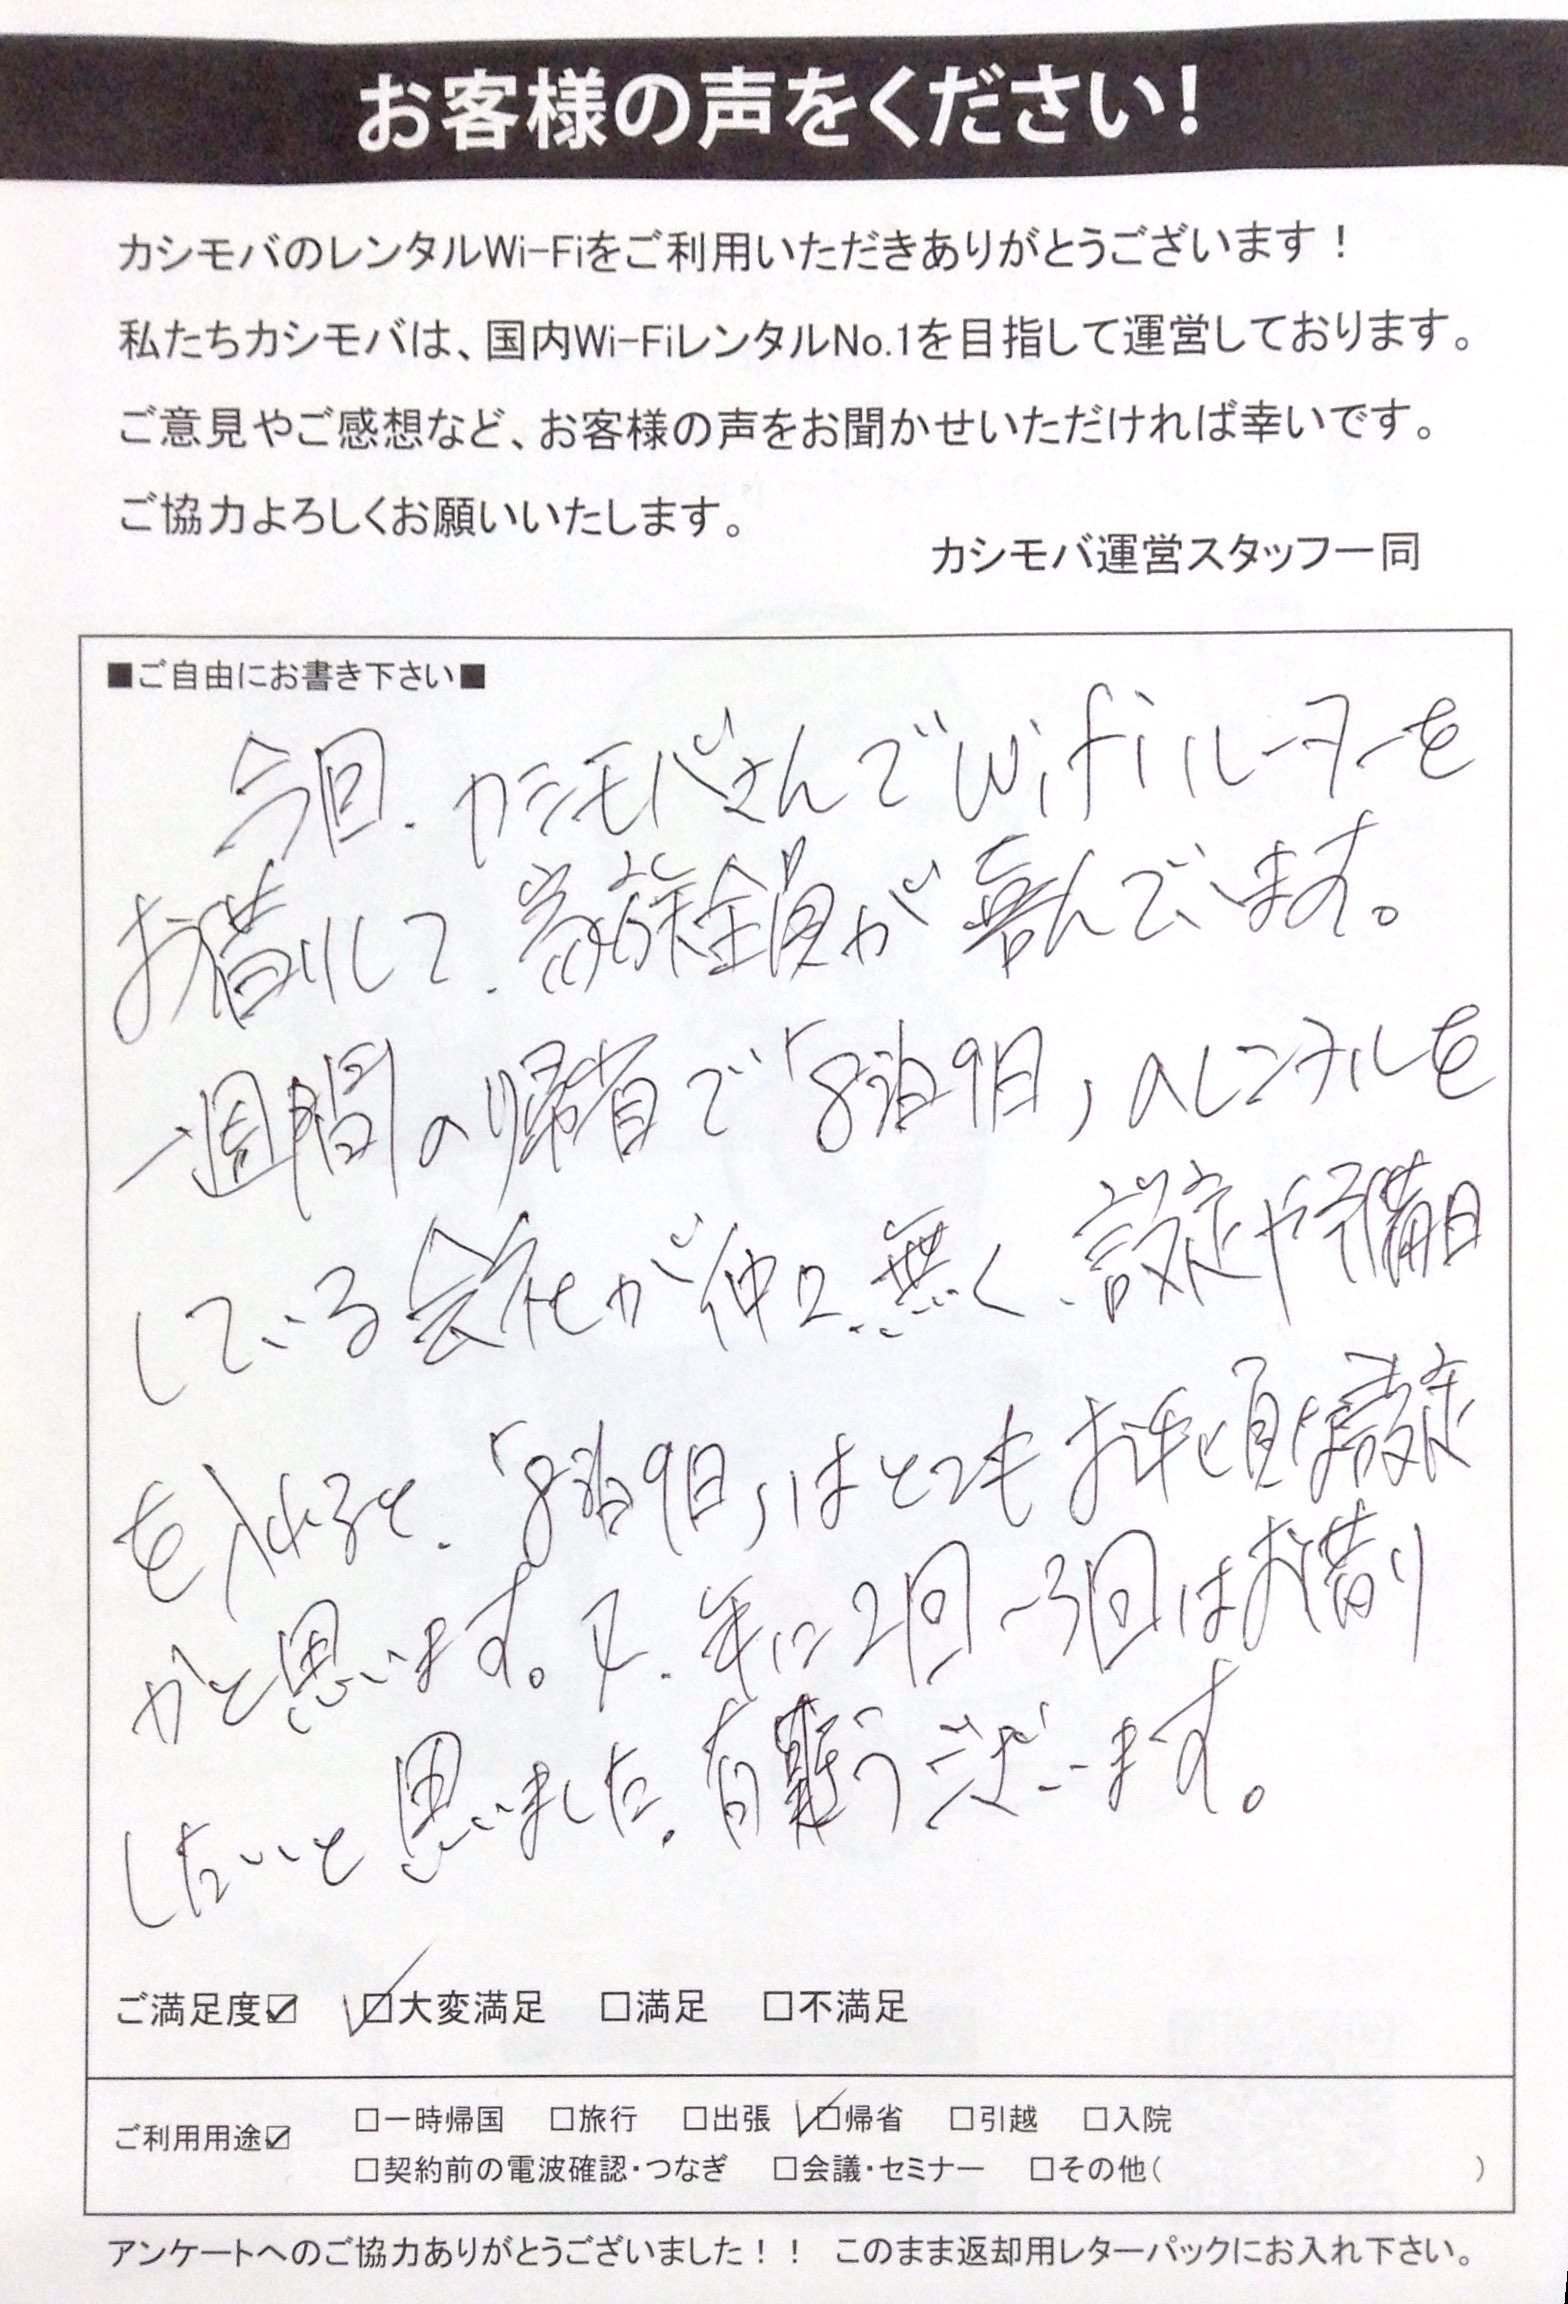 お客様の声をください!
カシモバのレンタルWi-Fiをご利用いただきありがとうございます！
私たちカシモバは、国内Wi-FiレンタルNo.1を目指して運営しております。
ご意見やご感想など、お客様の声をお聞かせいただければ幸いです。
ご協力よろしくお願いいたします。
カシモバ運営スタッフ一同
■ご自由にお書き下さい■
今回、カシモバさんでWifiルーターを
お借りして、家族全員が喜んでいます。
一週間の帰省で「8泊9日」のレンタルを
している会社が仲々無く、設定や予備日
を入れると、「8泊9日」はとてもお手頃な設定
かと思います。又、年に2回〜3回はお借り
したいと思いました。有難うございます。
ご満足度☑ ☑大変満足 □満足 □不満足
ご利用用途☑ □一時帰国 □旅行 □出張 ☑帰省 □引越 □入院
□契約前の電波確認・つなぎ □会議・セミナー □その他( )
アンケートへのご協力ありがとうございました！！ このまま返却用レターパックにお入れ下さい。